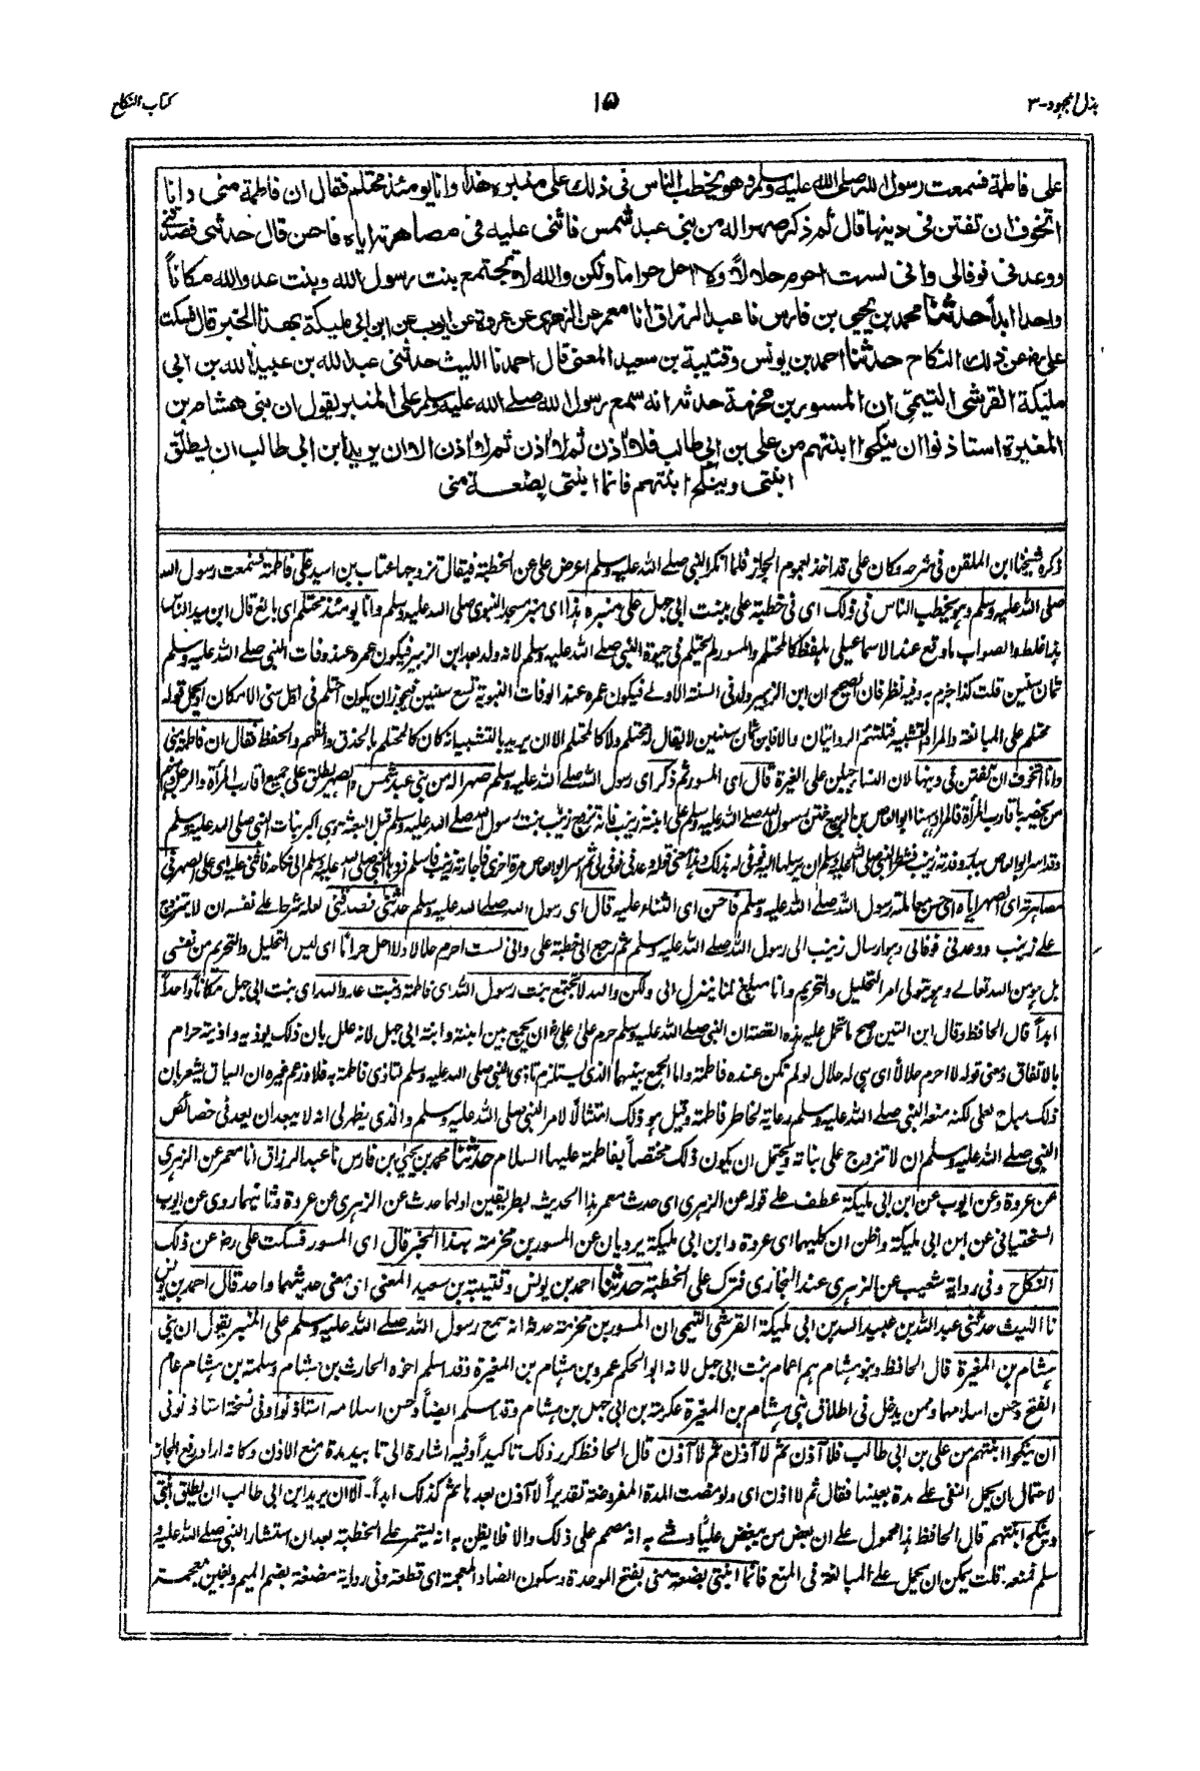 بذل المجهود-٣
١٥
كتاب النكاح
على فاطمة فسمعت رسول الله صلى الله عليه وسلم وهو يخطب الناس فى ذلك على منبره هذا وانا يومئذ محتلم فقال ان فاطمة منى وانا
اتخوف ان تفتن فى دينها قال ثم ذكر صهرا له من بنى عبد شمس فاثنى عليه فى مصاهرته اياه فاحسن قال حدثنى فصدقنى
ووعدنى فوفالى وانى لست احرم حلالاً ولا احل حراما ولكن والله لا تجتمع بنت رسول الله وبنت عدو الله مكاناً
واحدا ابداً حدثنا محمد بن يحيى بن فارس نا عبد الرزاق انا معمر عن الزهرى عن عروة عن ايوب عن ابن ابى مليكة بهذا الخبر قال فسكت
على رض عن ذلك النكاح حدثنا احمد بن يونس وقتيبة بن سعيد المعنى قال احمد نا الليث حدثنى عبد الله بن عبيد الله بن ابى
مليكة القرشى التيمى ان المسور بن مخرمة حدثه انه سمع رسول الله صلى الله عليه وسلم على المنبر يقول ان بنى هشام بن
المغيرة استاذنوا ان ينكحوا ابنتهم من على بن ابى طالب فلا اذن ثم لا اذن ثم لا اذن الا ان يريد ابن ابى طالب ان يطلق
ابنتى وينكح ابنتهم فانما ابنتى بضعة منى
ذكره شيخنا ابن الملقن فى شرحه وكان على قد اخذ بعموم الجواز فلما انكر النبى صلى الله عليه وسلم اعرض على عن الخطبة فيقال تزوجها عتاب بن اسيد على فاطمة فسمعت رسول الله
صلى الله عليه وسلم وهو يخطب الناس فى ذلك اى فى خطبة على بنت ابى جهل على منبره هذا اى منبر مسجد النبوى صلى الله عليه وسلم وانا يومئذ محتلم اى بالغ قال ابن سيد الناس
هذا غلط والصواب ما وقع عند الاسماعيلى بلفظ كالمحتلم والمسور لم يحتلم فى حيوة النبى صلى الله عليه وسلم لانه ولد بعد ابن الزبير فيكون عمره عند وفات النبى صلى الله عليه وسلم
ثمان سنين قلت كذا جزم به وفيه نظر فان الصحيح ان ابن الزبير ولد فى السنة الاولى فيكون عمره عند الوفات النبوية تسع سنين فيجوز ان يكون احتلم فى اول سنى الامكان او يحمل قوله
محتلم على المبالغة والمراد التشبيه فتلتئم الروايتان والا فابن ثمان سنين لا يقال له محتلم ولا كالمحتلم الا ان يريد بالتشبيه انه كان كالمحتلم بالحذق والفهم والحفظ فقال ان فاطمة منى
وانا اتخوف ان تفتن فى دينها لان النساء جبلن على الغيرة قال اى المسور ثم ذكر اى رسول الله صلى الله عليه وسلم صهرا له من بنى عبد شمس والصهر يطلق على جميع اقارب المرأة والرجل ومنهم
من يخصه باقارب المرأة فالمراد هنا ابو العاص بن الربيع ختن رسول الله صلى الله عليه وسلم على ابنته زينب فانه تزوج زينب بنت رسول الله صلى الله عليه وسلم قبل البعثة وهى اكبر بنات النبى صلى الله عليه وسلم
وقد اسر ابو العاص ببدر وفدته زينب فشرط النبى صلى الله عليه وسلم ان يرسلها اليه فوفى له بذلك فهذا معنى قوله وعدنى فوفى لى ثم اسر ابو العاص مرة اخرى فاجارته زينب فاسلم فردها النبى صلى الله عليه وسلم الى نكاحه فاثنى عليه اى على الصهر فى
مصاهرته اى الصهر اياه اى رسول الله صلى الله عليه وسلم فاحسن اى الثناء عليه قال اى رسول الله صلى الله عليه وسلم حدثنى فصدقنى لعله شرط على نفسه ان لا يتزوج
على زينب ووعدنى فوفالى وهو ارسال زينب الى رسول الله صلى الله عليه وسلم ثم رجع الى خطبة على وانى لست احرم حلالا ولا احل حراماً اى ليس التحليل والتحريم من نفسى
بل هو من الله تعالى وهو يتولى امر التحليل والتحريم وانا مبلغ لما ينزل الى ولكن والله لا تجتمع بنت رسول الله اى فاطمة وبنت عدو الله اى بنت ابى جهل مكاناً واحداً
ابداً قال الحافظ وقال ابن التين اصح ما تحمل عليه هذه القصة ان النبى صلى الله عليه وسلم حرم على على ان يجمع بين ابنته وابنة ابى جهل لانه علل بان ذلك يوذيه واذيته حرام
بالاتفاق ومعنى قوله لا احرم حلالاً اى هى له حلال لو لم تكن عنده فاطمة واما الجمع بينهما الذى يستلزم تاذى النبى صلى الله عليه وسلم لتاذى فاطمة به فلا وزعم غيره ان السياق يشعر بان
ذلك مباح لعلى لكنه منعه النبى صلى الله عليه وسلم رعاية لخاطر فاطمة وقبل هو ذلك امتثالا لامر النبى صلى الله عليه وسلم والذى يظهر لى انه لا يبعد ان يعد فى خصائص
النبى صلى الله عليه وسلم ان لا تزوج على بناته ويحتمل ان يكون ذلك مختصاً بفاطمة عليها السلام حدثنا محمد بن يحيى بن فارس نا عبد الرزاق انا معمر عن الزهرى
عن عروة وعن ايوب عن ابن ابى مليكة عطف على قوله عن الزهرى اى حدث معمر هذا الحديث بطريقين اولهما حدث عن الزهرى عن عروة وثانيهما روى عن ايوب
السختيانى عن ابن ابى مليكة واظن ان كليهما اى عروة وابن ابى مليكة يرويان عن المسور بن مخرمة بهذا الخبر قال اى المسور فسكت على رض عن ذلك
النكاح وفى رواية شعيب عن الزهرى عند البخارى فترك على الخطبة حدثنا احمد بن يونس وقتيبة بن سعيد المعنى اى معنى حديثهما واحد قال احمد بن يونس
نا الليث حدثنى عبد الله بن عبيد الله بن ابى مليكة القرشى التيمى ان المسور بن مخرمة حدثه انه سمع رسول الله صلى الله عليه وسلم على المنبر يقول ان بنى
هشام بن المغيرة قال الحافظ وبنو هشام هم اعمام بنت ابى جهل لانه ابو الحكم عمرو بن هشام بن المغيرة وقد اسلم اخوه الحارث بن هشام وسلمة بن هشام عام
الفتح وحسن اسلامهما وممن يدخل فى اطلاق بنى هشام بن المغيرة عكرمة بن ابى جهل بن هشام وقد اسلم ايضاً وحسن اسلامه استاذنوا وفى نسخة استاذنونى
ان ينكحوا ابنتهم من على بن ابى طالب فلا آذن ثم لا آذن ثم لا آذن قال الحافظ كرر ذلك تاكيداً وفيه اشارة الى تابيد مدة منع الاذن وكانه اراد رفع المجاز
لاحتمال ان يحمل النفى على مدة بعينها فقال ثم لا اذن اى ولو مضت المدة المفروضة تقديراً لا آذن بعدها ثم كذلك ابداً- الا ان يريد ابن ابى طالب ان يطلق ابنتى
وينكح ابنتهم قال الحافظ هذا محمول على ان بعض من يبغض علياً وشى به انه مصمم على ذلك والا فلا يظن به انه يستمر على الخطبة بعد ان استشار النبى صلى الله عليه و
سلم فمنعه. قلت يمكن ان يحمل على المبالغة فى المنع فانما ابنتى بضعة منى بفتح الموحدة وسكون الضاد المعجمة اى قطعة وفى رواية مضغة بضم الميم وبغين معجمة